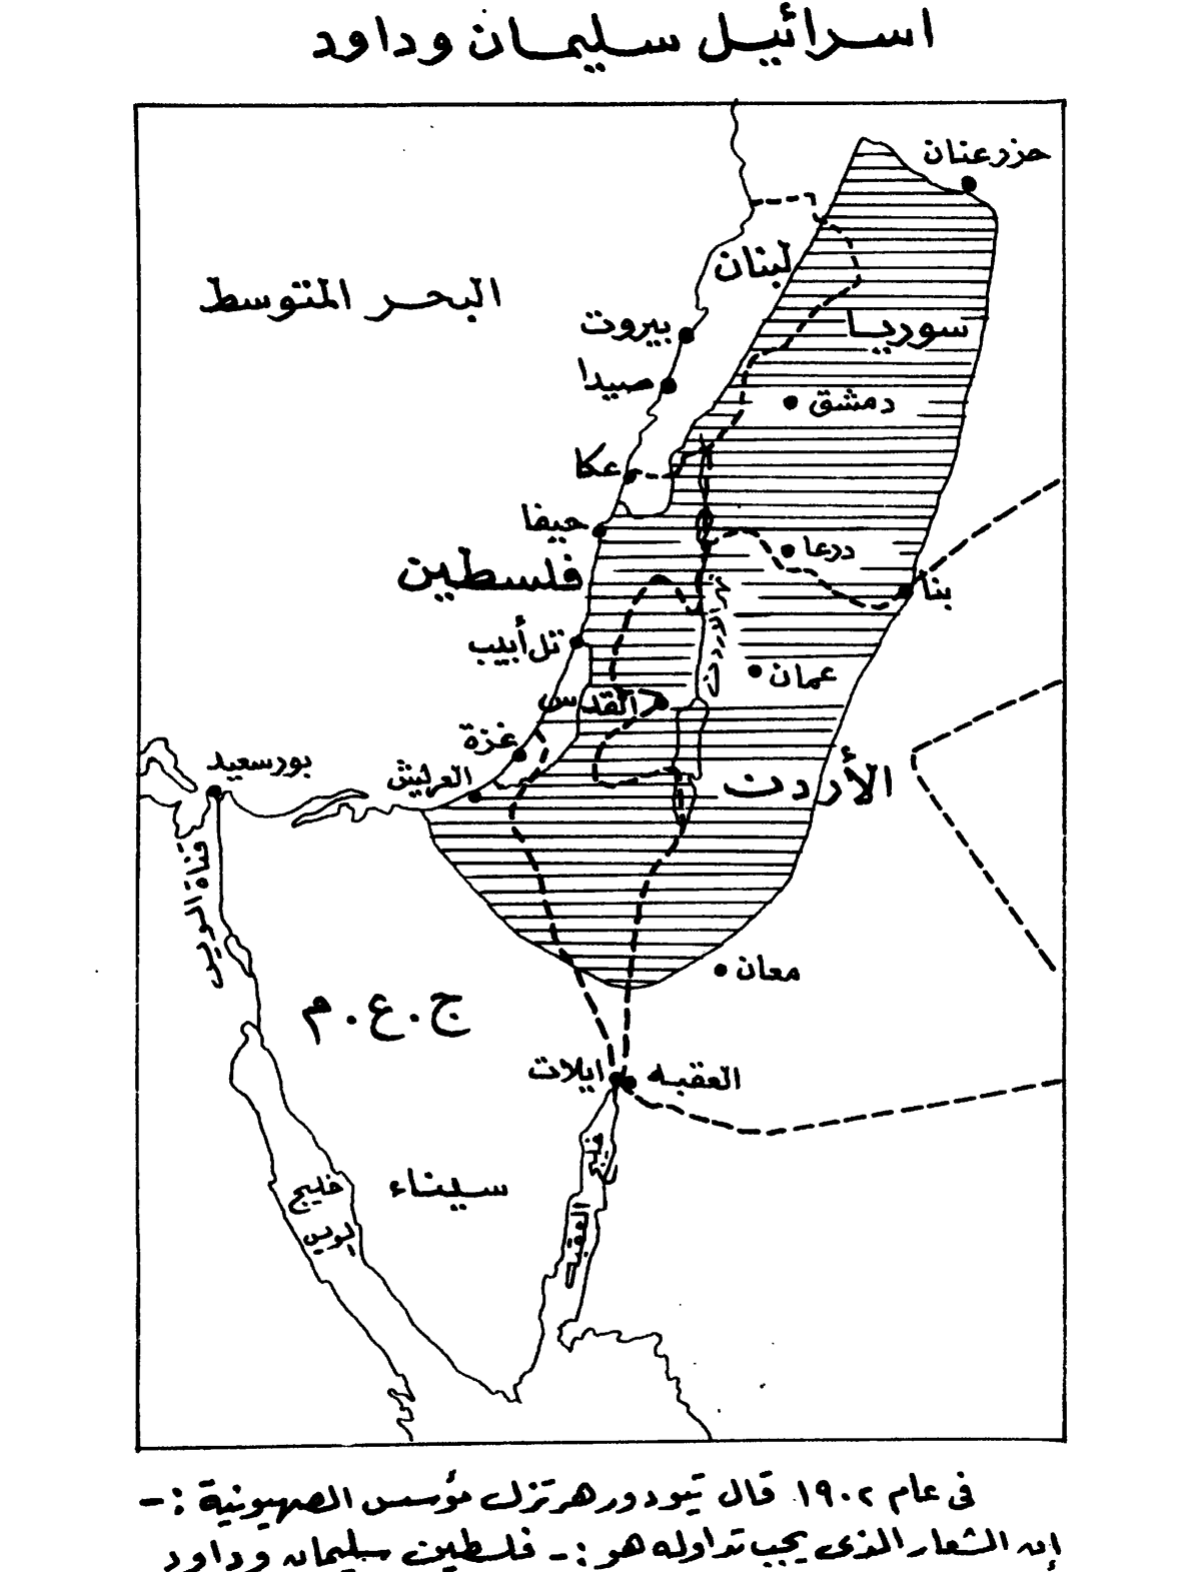 اسرائيل سليمان وداود
حزرعنان
لبنان
البحر المتوسط
سوريا
بيروت
صيدا
دمشق
عكا
حيفا
درعا
فلسطين
بنا
نهر الاردن
تل أبيب
عمان
القدس
غزة
بورسعيد
العريش
الأردن
قناة السويس
معان
ج.ع.م
ايلات
العقبه
خليج
العقبه
سيناء
خليج
السويس
فى عام ١٩٠٢ قال تيودور هرتزل مؤسس الصهيونية :-
إن الشعار الذى يجب تداوله هو :- فلسطين سليمان وداود